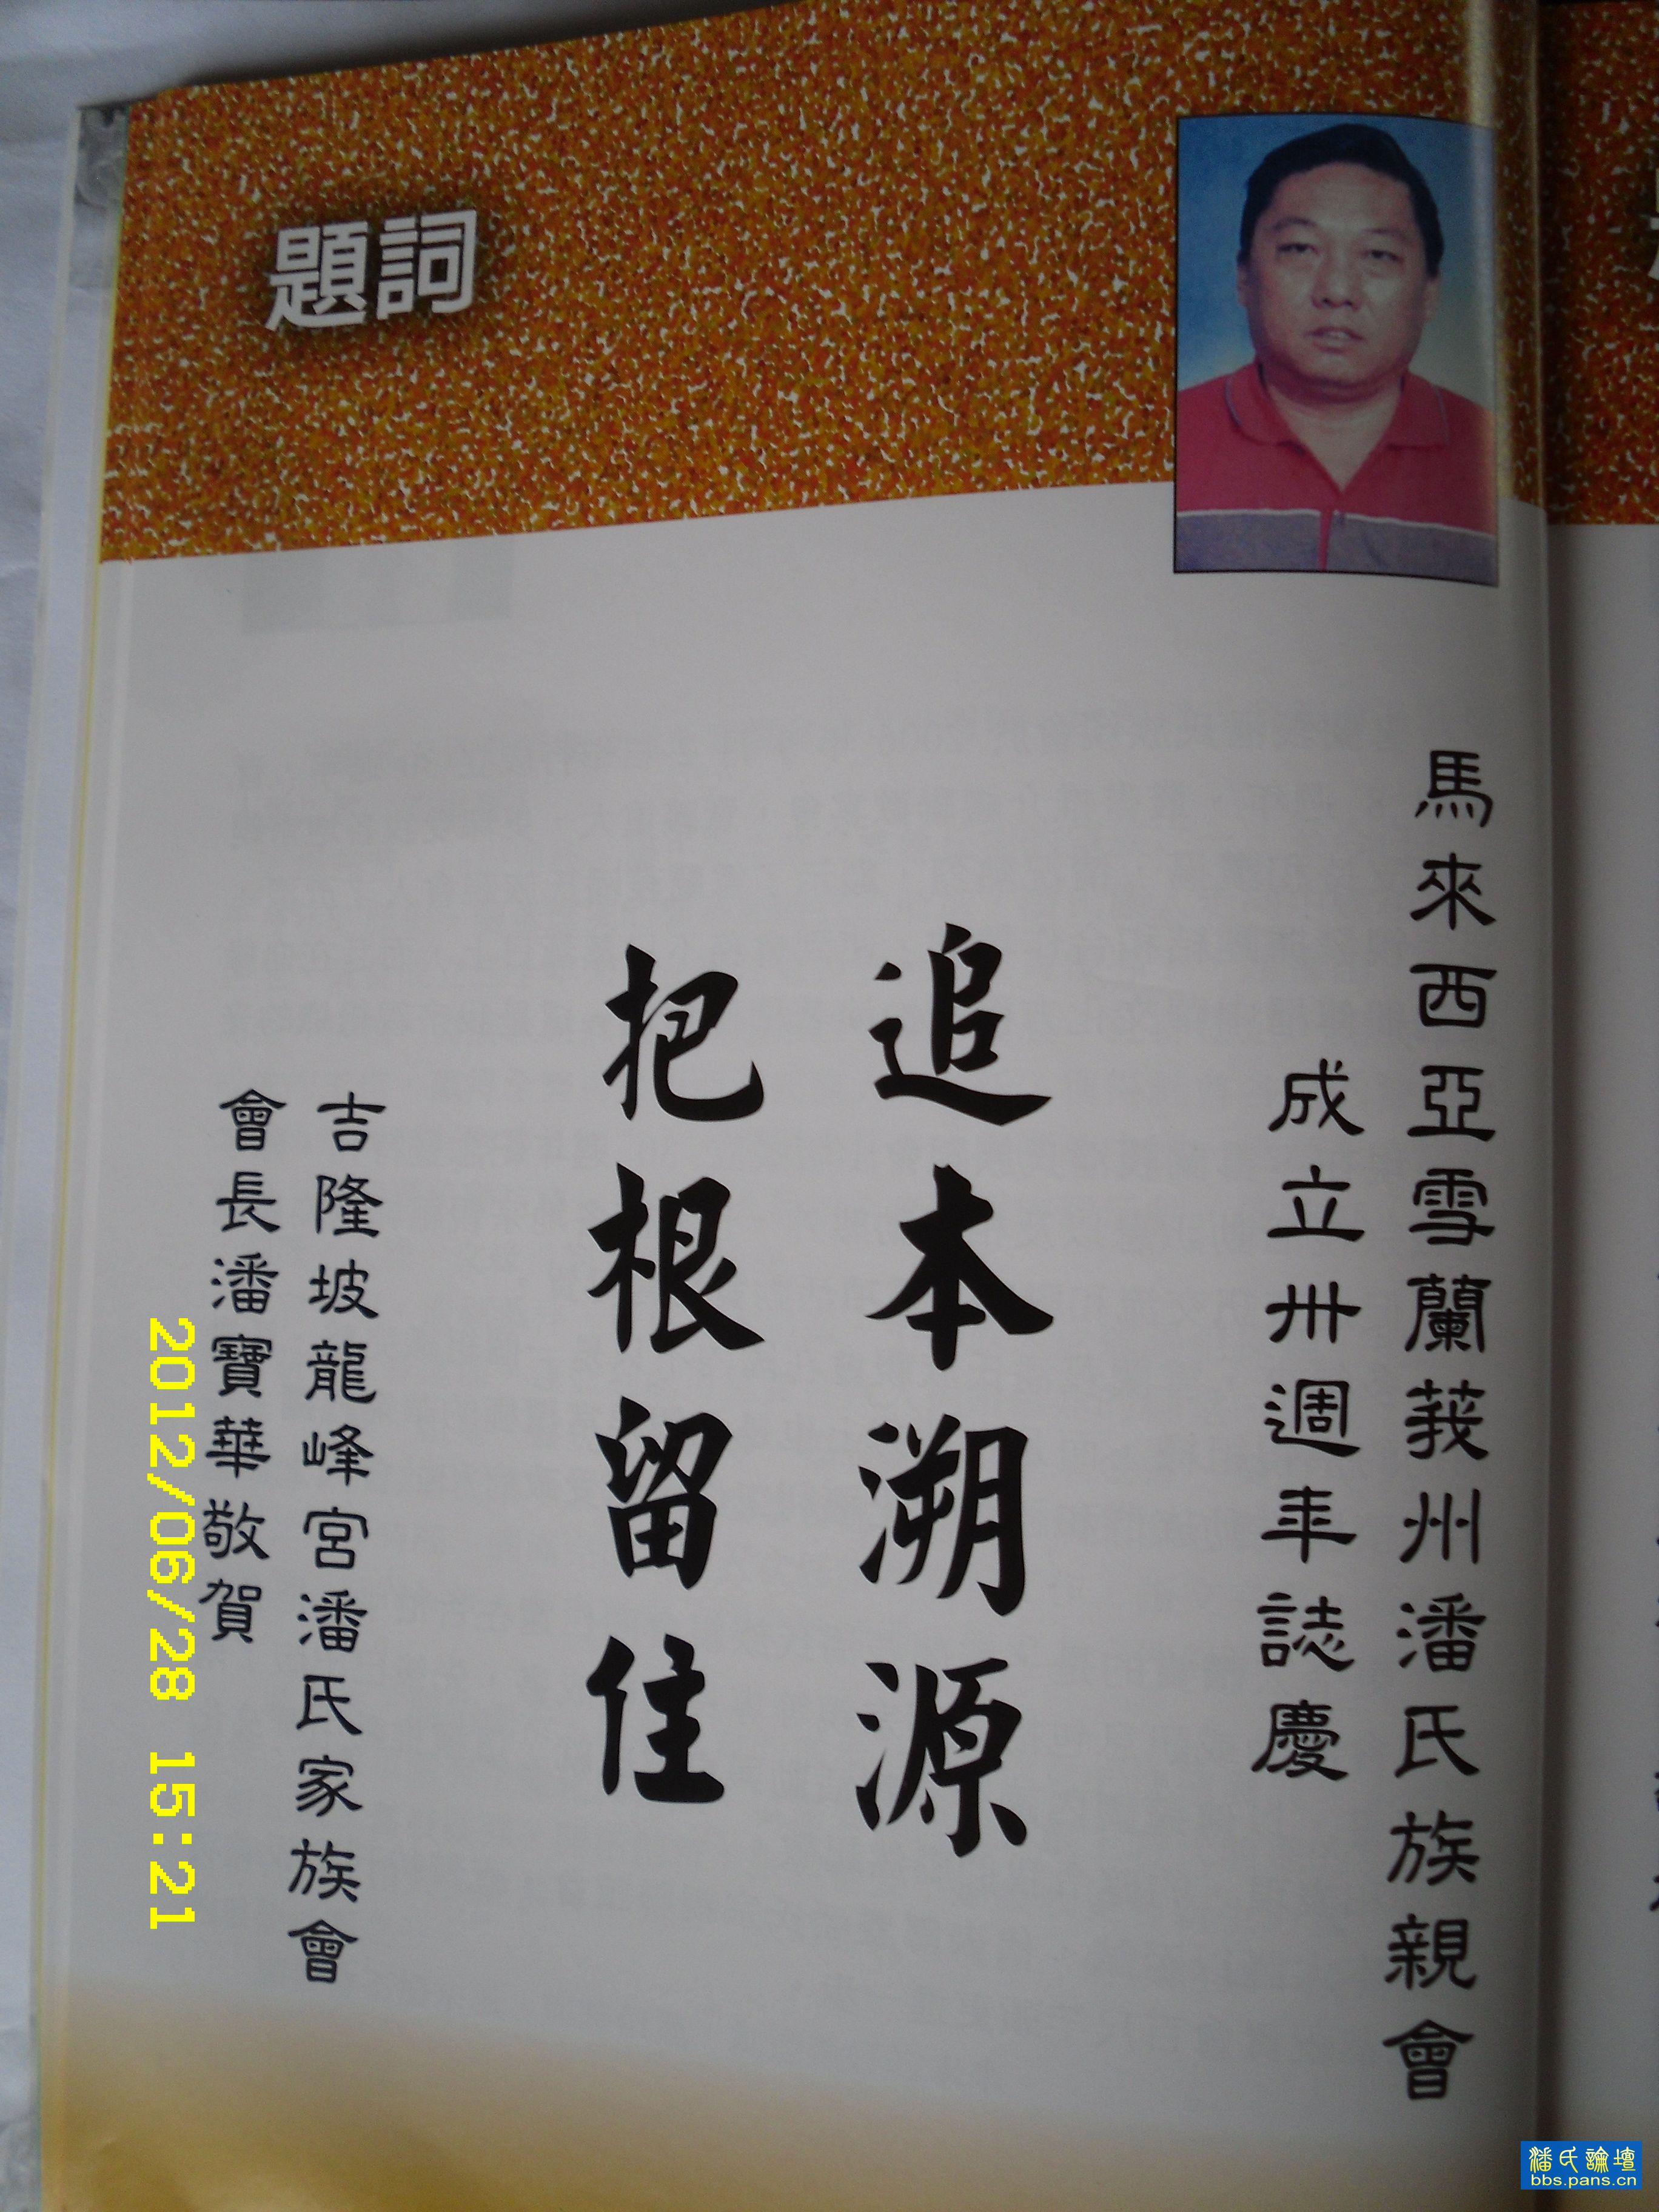 題詞
馬來西亞雪蘭莪州潘氏族親會
成立卅週年誌慶
追本溯源
把根留住
吉隆坡龍峰宮潘氏家族會
會長潘寶華敬賀
2012/06/28 15:21
潘氏論壇
bbs.pans.cn